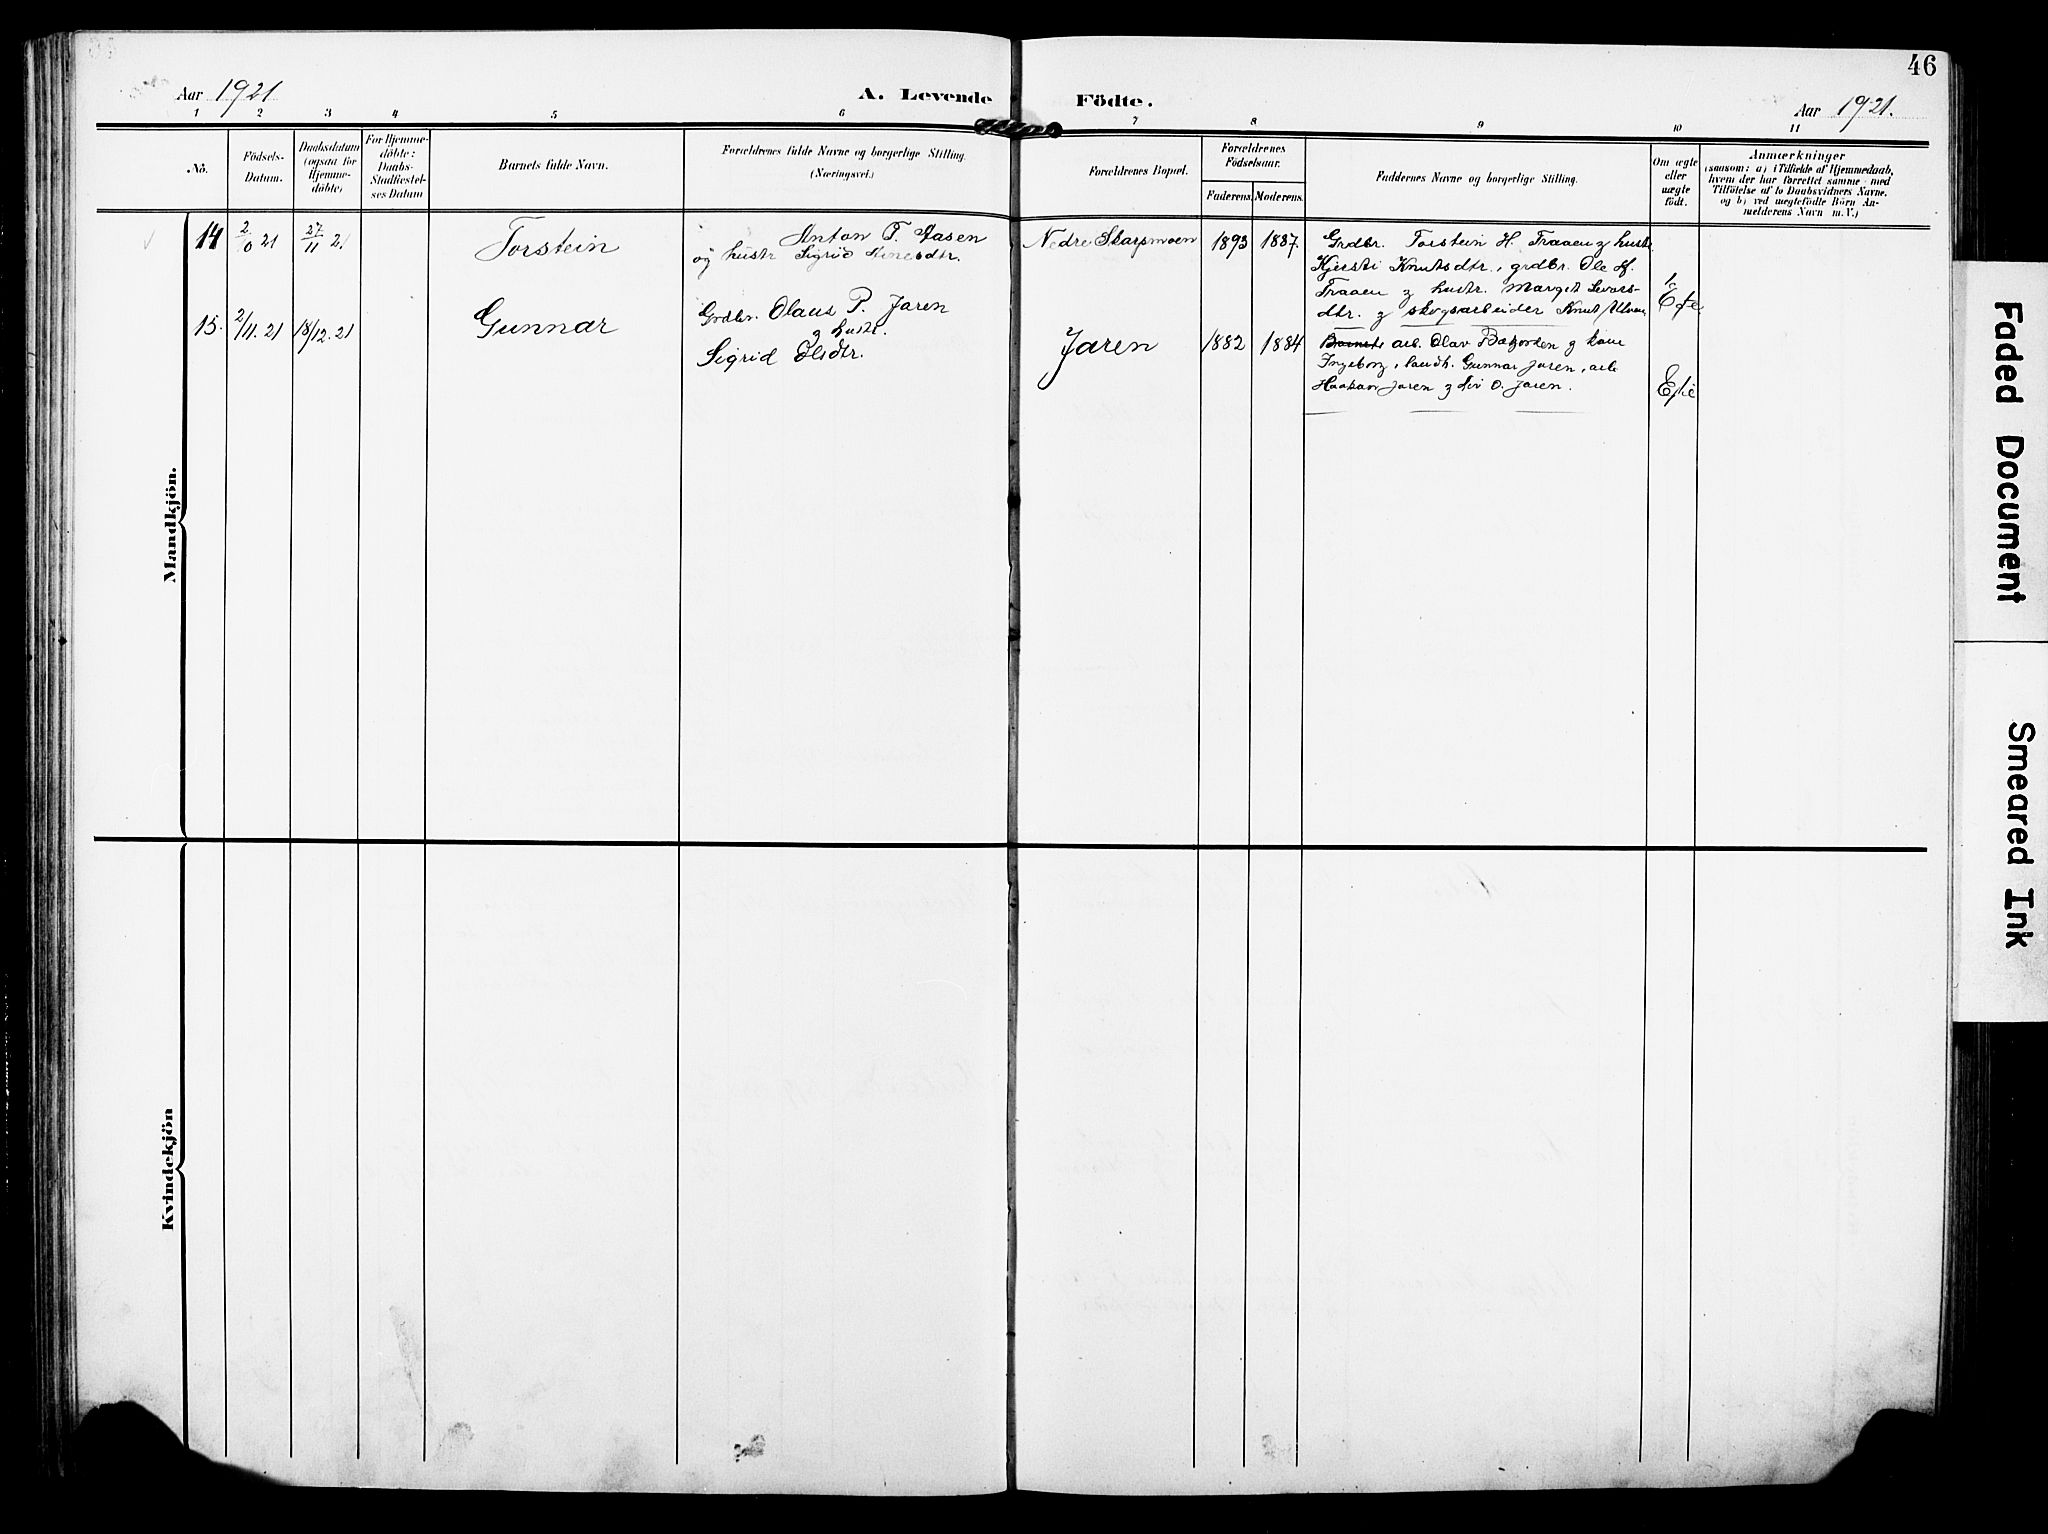 46
Aar 1921
A. Levende Födte.
Aar 1921.
1 2 3 4 5 6 7 8 9 10 11
No.
Födsels-Datum.
Daabsdatum (ogsaa for Hjemme-döbte)
For Hjemme-döbte: Daabs-Stadfæstel-ses Datum
Barnets fulde Navn.
Forældrenes fulde Navne og borgerlige Stilling.
(Næringsvei.)
Forældrenes Bopæl.
Forældrenes Födselsaar.
Faderens. Moderens.
Faddernes Navne og borgerlige Stilling.
Om ægte eller uægte födt.
Anmærkninger
(saasom: a) i Tilfælde af Hjemmedaab,
hvem der har forrettet samme med
Tilföielse af to Daabsvidners Navne,
og b) ved uægtefödte Börn An-
melderens Navn m. V.)
Mandkjön.
14 2/0 21 27/11 21
Torstein
Anton T.
og hustr Sigrid
Nedre Skarsmoen 1893 1887.
Grdbr. Torstein H. Traaen & hustr.
Kjersti Knutsdtr., grdbr. Ole H.
Traaen & hustr. Marget Sevats-
dtr. & skogsarbeider Knut
Egte
15. 2/11. 21 18/12. 21
Gunnar
Grdbr. Olaus P. Jaren
& hustr.
Sigrid Olsdtr.
Jaren 1882 1884
Barnets arb. Olav & kone
Ingeborg, landh. Gunnar Jaren, arb
Haakan Jaren & Liv O. Jaren.
Egte
Kvindekjön
Faded Document
Smeared Ink